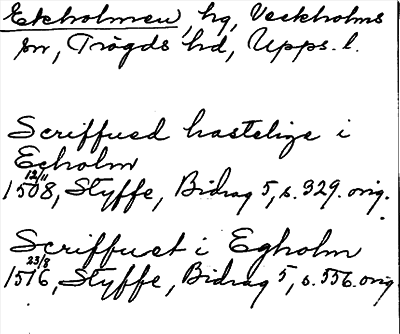 Ekholmen, hg, Veckholms
sn, Trögds hd, Upps. l.
Scriffued hastelige i
Echolm
12/11
1508, Styffe, Bidrag 5, s. 329. orig.
Scriffuet i Egholm
23/8
1516, Styffe, Bidrag 5, s. 556. orig